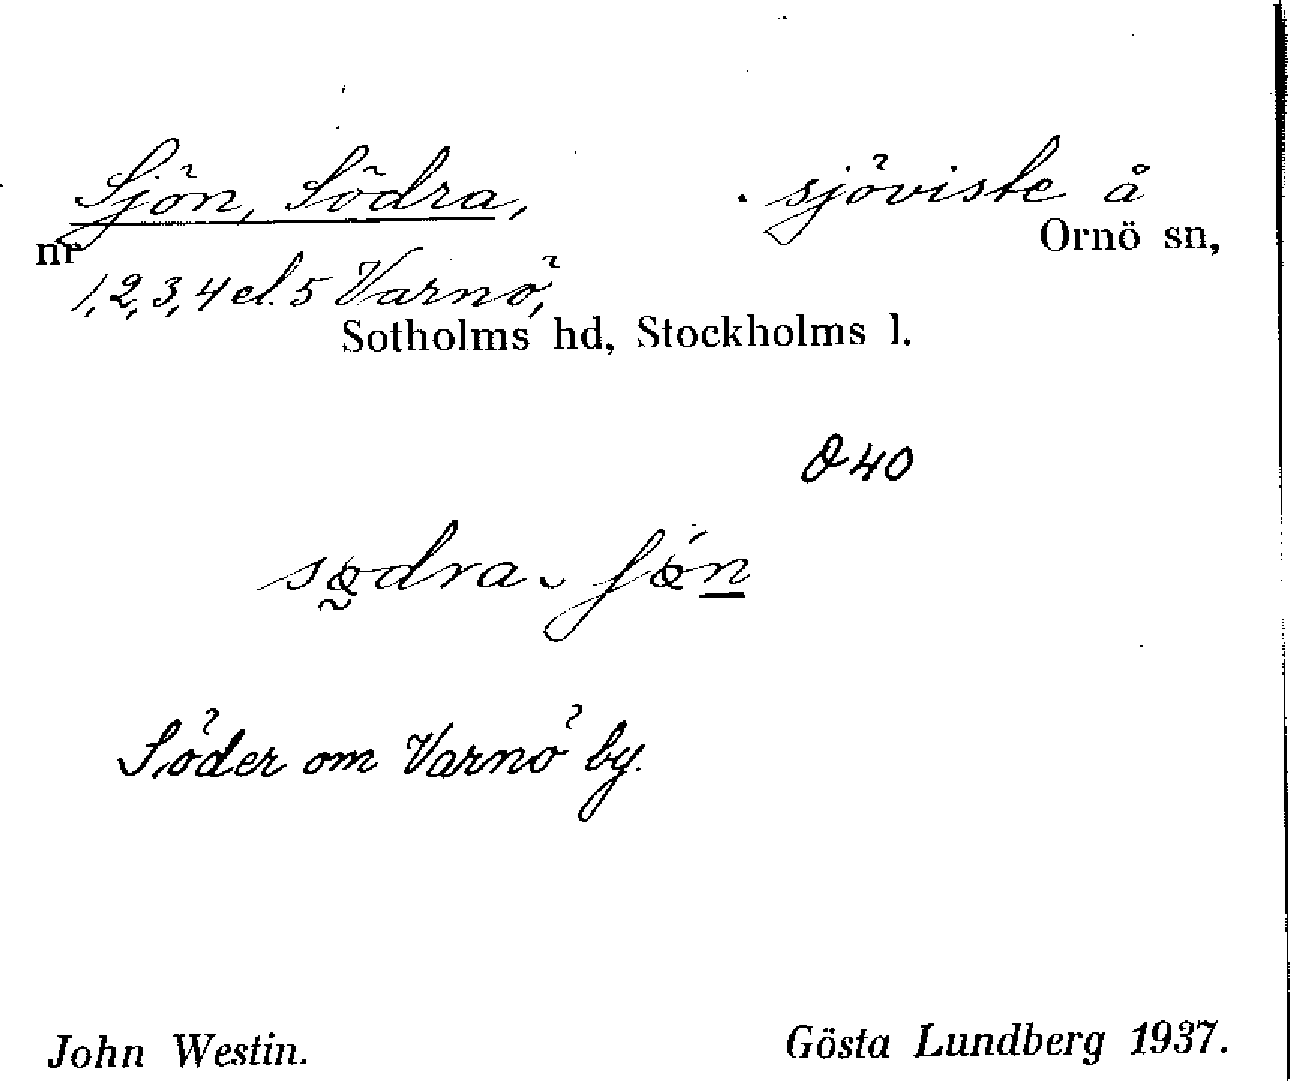 Sjön, Södra, sjöviste å
nr Ornö sn,
1, 2, 3, 4 el. 5 Varnö,
Sotholms hd, Stockholms l.
40
Söder om Varnö by.
John Westin. Gösta Lundberg 1937.